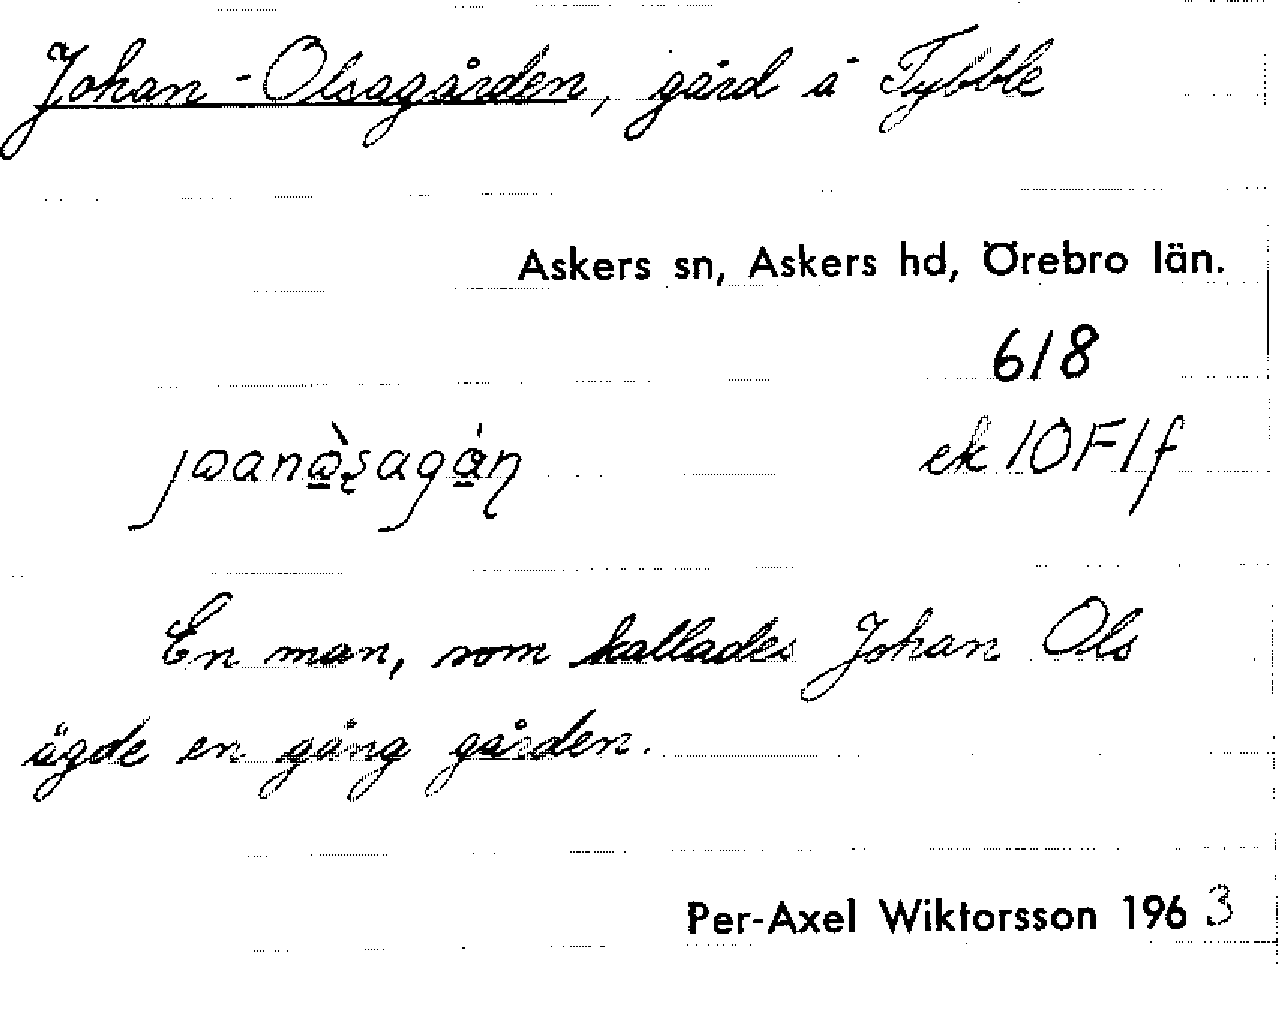 Johan-Olsagården, gård å Tybble
Askers sn, Askers hd, Örebro län.
618
ek 10F1f
En man, som kallades Johan Ols
ägde en gång gården.
Per-Axel Wiktorsson 1963